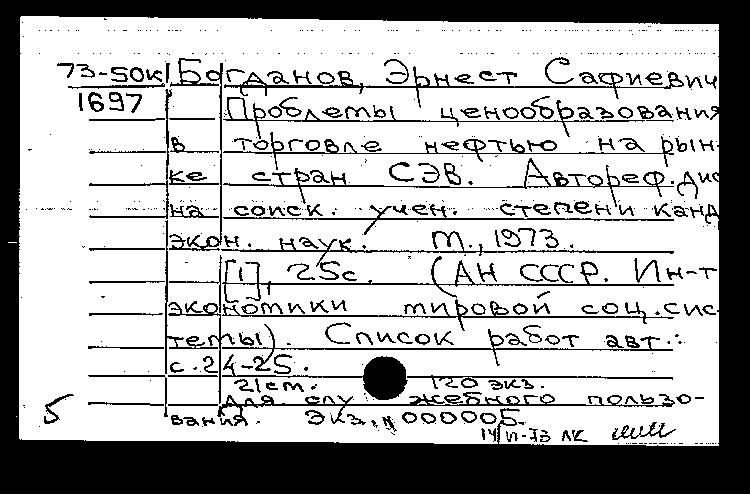 73-50к Богданов, Эрнест Сафиевич
1697 Проблемы ценообразования
в торговле нефтью на рын-
ке стран СЭВ. Автореф. дис
на соиск. учен. степени канд
экон. наук. М., 1973.
[1], 25с. (АН СССР. Ин-т
экономики мировой соц. сис-
темы). Список работ авт.:
с. 24-25.
21см. 120 экз.
Для служебного пользо-
5 вания. Экз. № 000005.
14/VI-73 ЛК